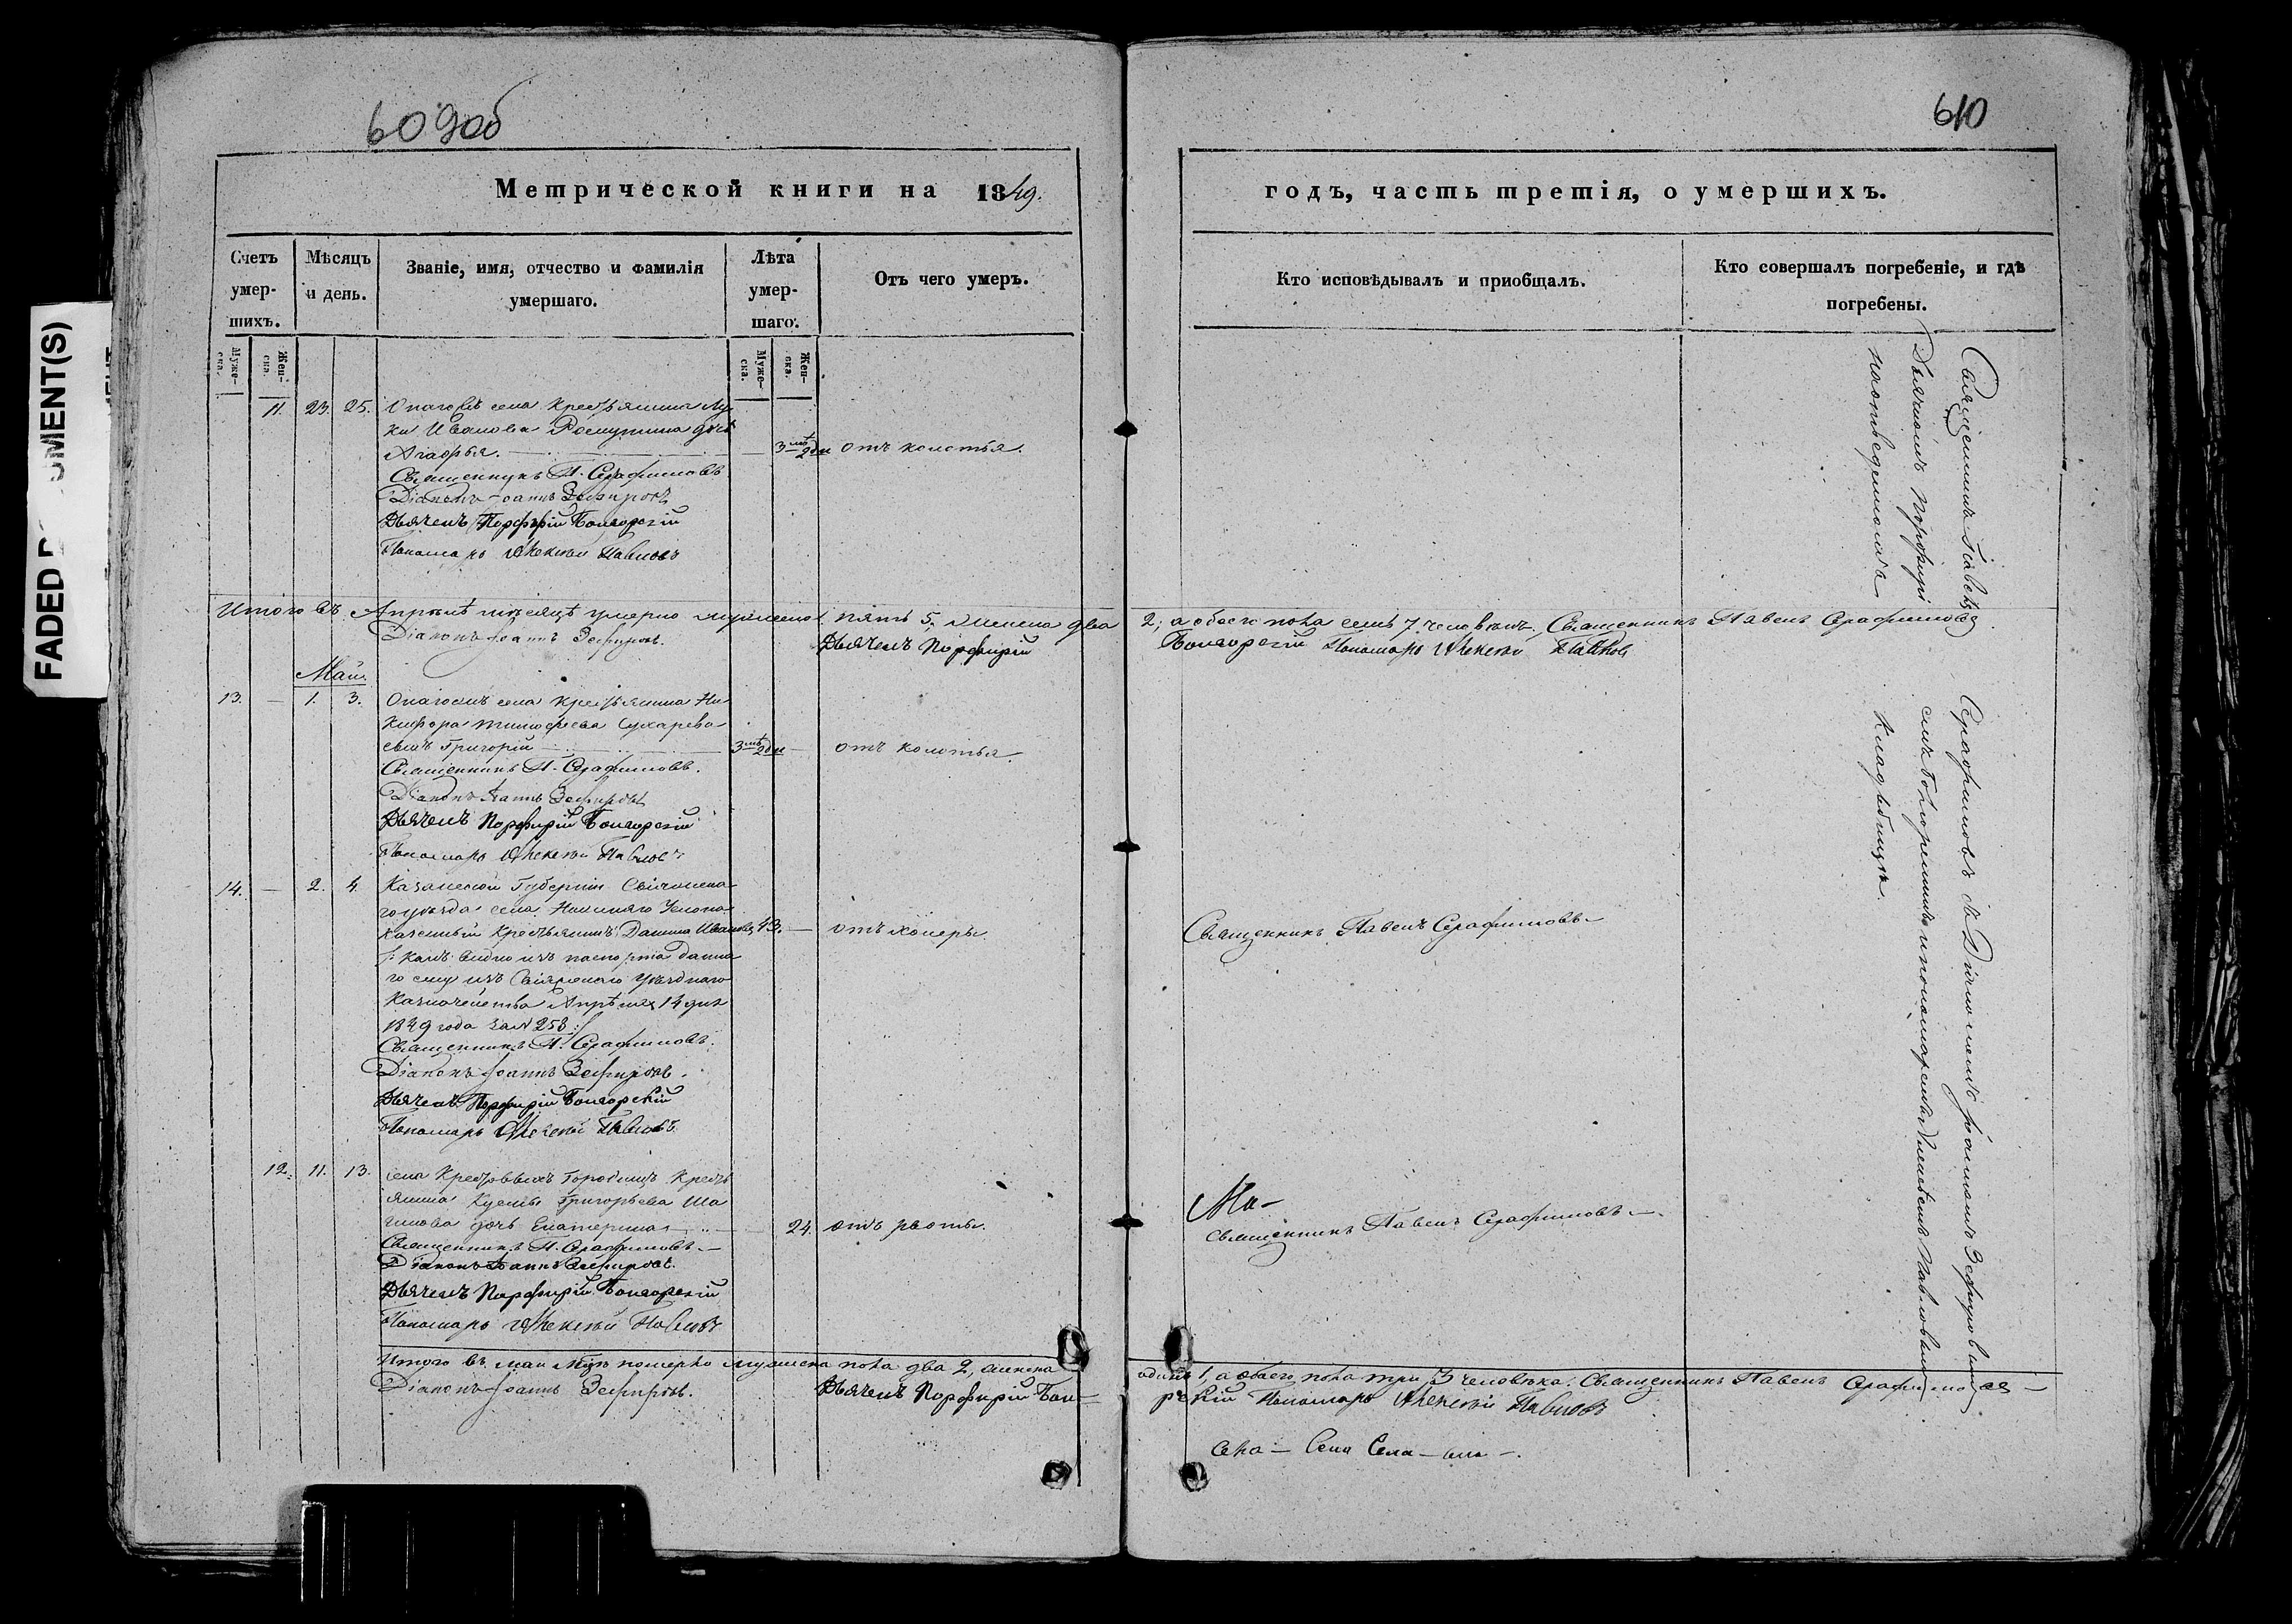 609об
610
Метрической книги на 1849.
годъ, часть третія, о умершихъ.
Счетъ умер-шихъ.
Мѣсяцъ и день.
Званіе, имя, отчество и фамилія умершаго.
Лѣта умер-шаго.
Отъ чего умеръ.
Кто исповѣдывалъ и пріобщалъ.
Кто совершалъ погребеніе, и гдѣ погребены.
Муже-ска.
Жен-ска.
Муже-ска.
Жен-ска.
11. 23. 25. села Крестьянина Лу
ки Иванова дочь
Агафья. — 3 2 дн отъ колотья.
Священникъ П. Серафимовъ
Діаконъ Іоаннъ Зефировъ
Дьячекъ Порфирій
Пономарь Алексѣй Павловъ
Итого въ Апрѣлѣ мѣсяцѣ умерло пять 5, женска два
2; а обоего пола семь 7 человѣкъ. Священникъ Павелъ Серафимовъ
Діаконъ Іоаннъ Зефировъ.
Дьячекъ Порфирій
Пономарь Алексѣй Павлов
Май.
13. — 1. 3. села Крестьянина Ни
кифора Тимофеева Сухарева
сынъ Григорій — 3 2 дн — отъ колотья.
Священникъ П. Серафимовъ.
Діаконъ Іоаннъ Зефировъ
Дьячекъ Порфирій
Пономарь Алексѣй Павловъ
14. — 2. 4. Казанской Губерніи
го уѣзда села Нижняго Услона
Крестьянинъ Данила Ивановъ 43. — отъ холеры.
Священникъ Павелъ Серафимовъ
/: какъ видно изъ паспорта данна
го ему изъ Свіяжского Уѣзднаго
Казначейства Апрѣля 14 дня
1849 года за № 258 :/
Священникъ П. Серафимовъ.
Діаконъ Іоаннъ Зефировъ.
Дьячекъ Порфирій
Пономарь Алексѣй Павловъ.
12. 11. 13. села Крестовыхъ Городищъ Кресть
янина Кузьмы Григорьева Ша
дочь Екатерина — 24. отъ рвоты.
Ма-
Священникъ Павелъ Серафимовъ —.
Священникъ П. Серафимовъ —
Діаконъ Іоаннъ Зефировъ.
Дьячекъ Порфирій
Пономарь Алексѣй Павловъ
Итого въ маи померло мужеска пола два 2, женска
одинъ 1, а обоего пола три 3 человѣка. Священникъ Павелъ Серафимовъ —
Діаконъ Іоаннъ Зефировъ.
Дьячекъ Порфирій
Пономарь Алексѣй Павловъ
села — Села Села — —.
Священникъ Павелъ
Серафимовъ съ Діакономъ Іоанномъ Зефировымъ
Дьячкомъ Порфирі
и пономаремъ Алексѣемъ Павловымъ
Кладбищѣ.
FADED DOCUMENT(S)